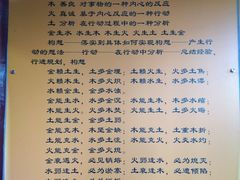 木 善良 对事物的一种内心的反应
火 真诚 基于内心反应的一种行动
土 在行动过程中的一种分析
金生水 水生木 木生火 火生土 土生金
构思 落实到具体如何实现构思 产生行
动的想法 行动 在行动中分析 总结经验，
行进规划，构思。
金赖土生，土多金埋；土赖火生，火多土焦；
火赖木生，木多火炽；木赖水生，水多木漂；
水赖金生，金多水浊。
金能生水，水多金沉；水能生木，木多水缩；
木能生火，火多木焚；火能生土，土多火晦；
土能生金，金多土弱。
金能克木，木坚金缺；木能克土，土重木折；
土能克水，水多土流；水能克火，火炎水灼；
火能克金，金多火熄。
金衰遇火，必见销熔；火弱逢水，必为熄灭；
水弱逢土，必为淤塞；土衰逢木，必遭倾陷；